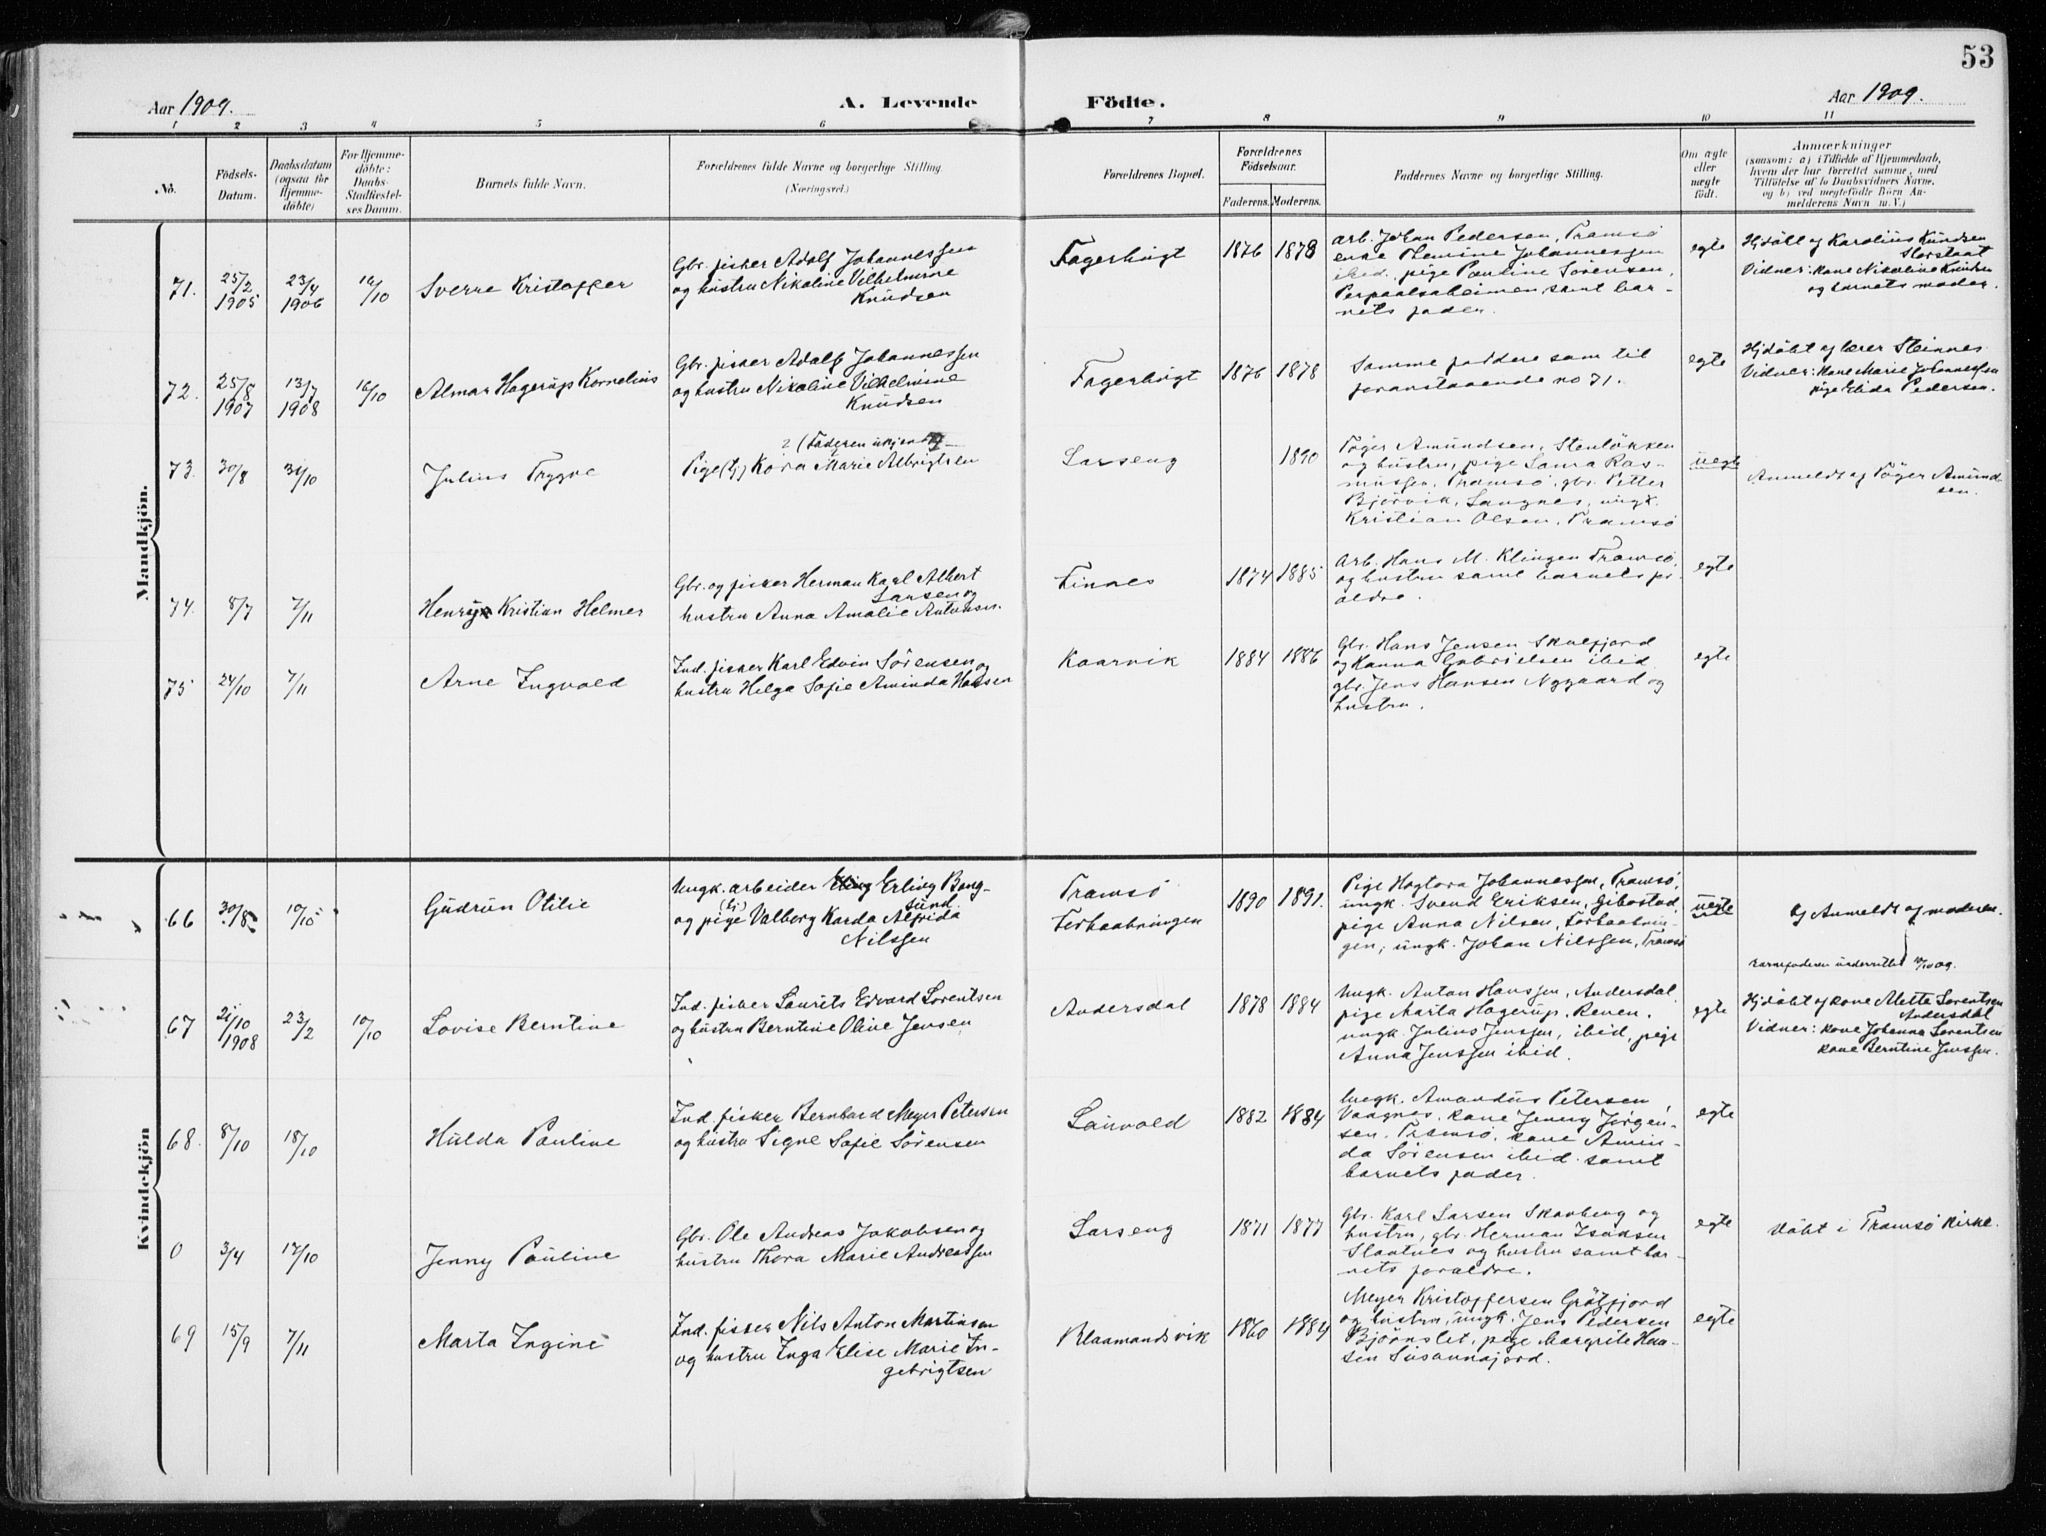 53
Aar 1909.
A. Levende
Födte.
Aar 1909.
1 2 3 4 5 6 7 8 9 10 11
No.
Födsels-
Datum.
Daabsdatum
(ogsaa för
Hjemme-
döbte)
For Hjemme-
döbte:
Daabs-
Stadfæstel-
ses Datum.
Barnets fulde Navn.
Forældrenes fulde Navne og borgerlige Stilling.
(Næringsvei.)
Forældrenes Bopæl.
Forældrenes
Födselsaar.
Faderens. Moderens.
Faddernes Navne og borgerlige Stilling.
Om ægte
eller
uægte
födt.
Anmærkninger
(saasom: a) i Tilfælde af Hjemmedaab,
hvem der har forrettet samme, med
Tilföielse af to Daabsvidners Navne,
og b) ved uægtefödte Börn An-
melderens Navn m. V.)
Mandkjön.
71.
25/2
1905
23/4
1906
16/10
Sverre Kristoffer
Gbr. fisker Adolf Johannessen
og hustru Nikoline Vilhelmine
Knudsen
Fagerbugt
1876 1878
arb. Johan Pedersen, Tromsö
enke Plemine Johannessen
ibid., pige Pauline Sörensen,
samt bar-
nets fader.
egte
Hjdöbt af Karolius Knudsen
Storstaat
Vidner: kone Nikoline Knudsen
og barnets moder.
72.
25/8
1907
13/7
1908
16/10
Almar Hagerup Kornelius
Gbr. fisker Adolf Johannessen
og hustru Nikoline Vilhelmine
Knudsen
Fagerbugt
1876 1878
Samme faddere som til
foranstaaende no 71.
egte
Hjdöbt af lærer Steinnes
Vidner: kone Marie Johannessen
pige Elida Pedersen.
73.
30/8
31/10
Julius Trygve
(Faderen ukjendt)
Pige (tj) Kora Marie Albrigtsen
Larseng
1890
Töger Amundsen, Stenlökken
og hustru, pige Laura Ras-
mussen, Tromsö, gbr. Petter
Björvik, Langnes, ungk.
Kristian Olsen, Tromsö
uegte
Anmeldt af Töger Amund-
sen.
74.
8/7
7/11
Henry Kristian Helmer
Gbr. og fisker Herman Karl Albert
Larsen og
hustru Anna Amalie Antonsen.
Finnes
1874 1885
Arb. Hans M. Klingen Tromsö,
og hustru samt barnets for-
ældre.
egte
75
24/10
7/11
Arne Ingvald
Ind. fisker Karl Edvin Sörensen og
hustru Helga Sofie Aminda Hansen
Kaarvik
1884 1886
Gbr. Hans Jensen Skulfjord
og Hanna Gabrielsen ibid.
gbr. Jens Hansen Nygaard og
hustru.
egte
Kvindekjön
66
30/8
10/10
Gudrun Otilie
Ungk. arbeider Erling Bang-
sund
og pige (tj) Valborg Karda Alfrida
Nilssen
Tromsö
Forhaabningen
1890 1891.
Pige Hagtora Johannessen, Tromsö,
ungk. Svend Eriksen, Gibostad,
pige Anna Nilsen, Forhaabnin-
gen, ungk. Johan Nilssen, Tromsö
uegte
Anmeldt af moderen.
barnefaderen underrettet 10/10 09.
67
21/10
1908
23/2
10/10
Lovise Berntine
Ind. fisker Laurits Edvard Lorentsen
og hustru Berntine Oline Jensen
Andersdal
1878 1884
Ungk. Anton Hanssen, Andersdal,
pige Marta Hagerup, Renen,
ungk. Julius Jenssen, ibid, pige
Anna Jenssen ibid.
egte
Hjdöbt af kone Mette Lorentsen
Andersdal
Vidner: kone Johanna Lorentsen
kone Berntine Jenssen.
68.
8/10
18/10
Hulda Pauline
Ind. fisker Bernhard Meyer Petersen
og hustru Signe Sofie Sörensen
Lauvold
1882 1884
Ungk. Amandus Petersen
Vaagnes, kone Jenny Jörgen-
sen. Tromsö, kone Amin-
da Sörensen ibid. samt
barnets fader.
egte
0
3/4
17/10
Jenny Pauline
Gbr. Ole Andreas Jakobsen og
hustru Thora Marie Andreassen
Larseng
1871 1877
Gbr. Karl Larsen Skavberg og
hustru, gbr. Herman Isaksen
Slaatnes og hustru samt bar-
nets forældre.
egte
Döbt i Tromsö kirke.
69
15/9
7/11
Marta Ingine
Ind. fisker Nils Anton Martinsen
og hustru Inga Elise Marie In-
gebrigtsen
Blaamandsvik
1860 1884
Meyer Kristoffersen Grötfjord
og hustru, ungk. Jens Pedersen
Björnslet, pige Margrite Han-
sen Susannajord.
egte